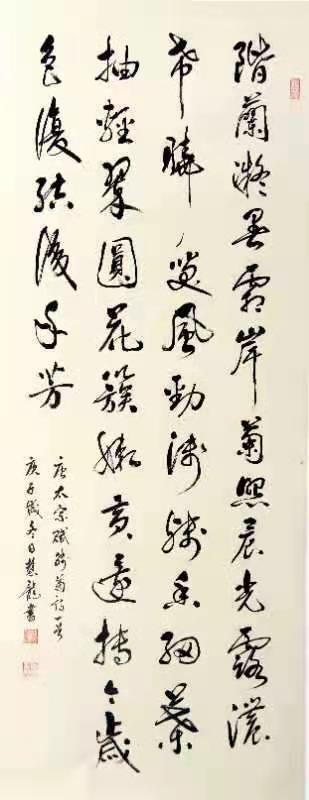 階蘭凝曙霜岸菊照晨光露濃
希曉笑風勁淺殘香細葉
抽輕翠圓花簇嫩黃還持今歲
色復結後年芳
唐太宗賦殘菊詩一首
庚子歲冬日慧龍書